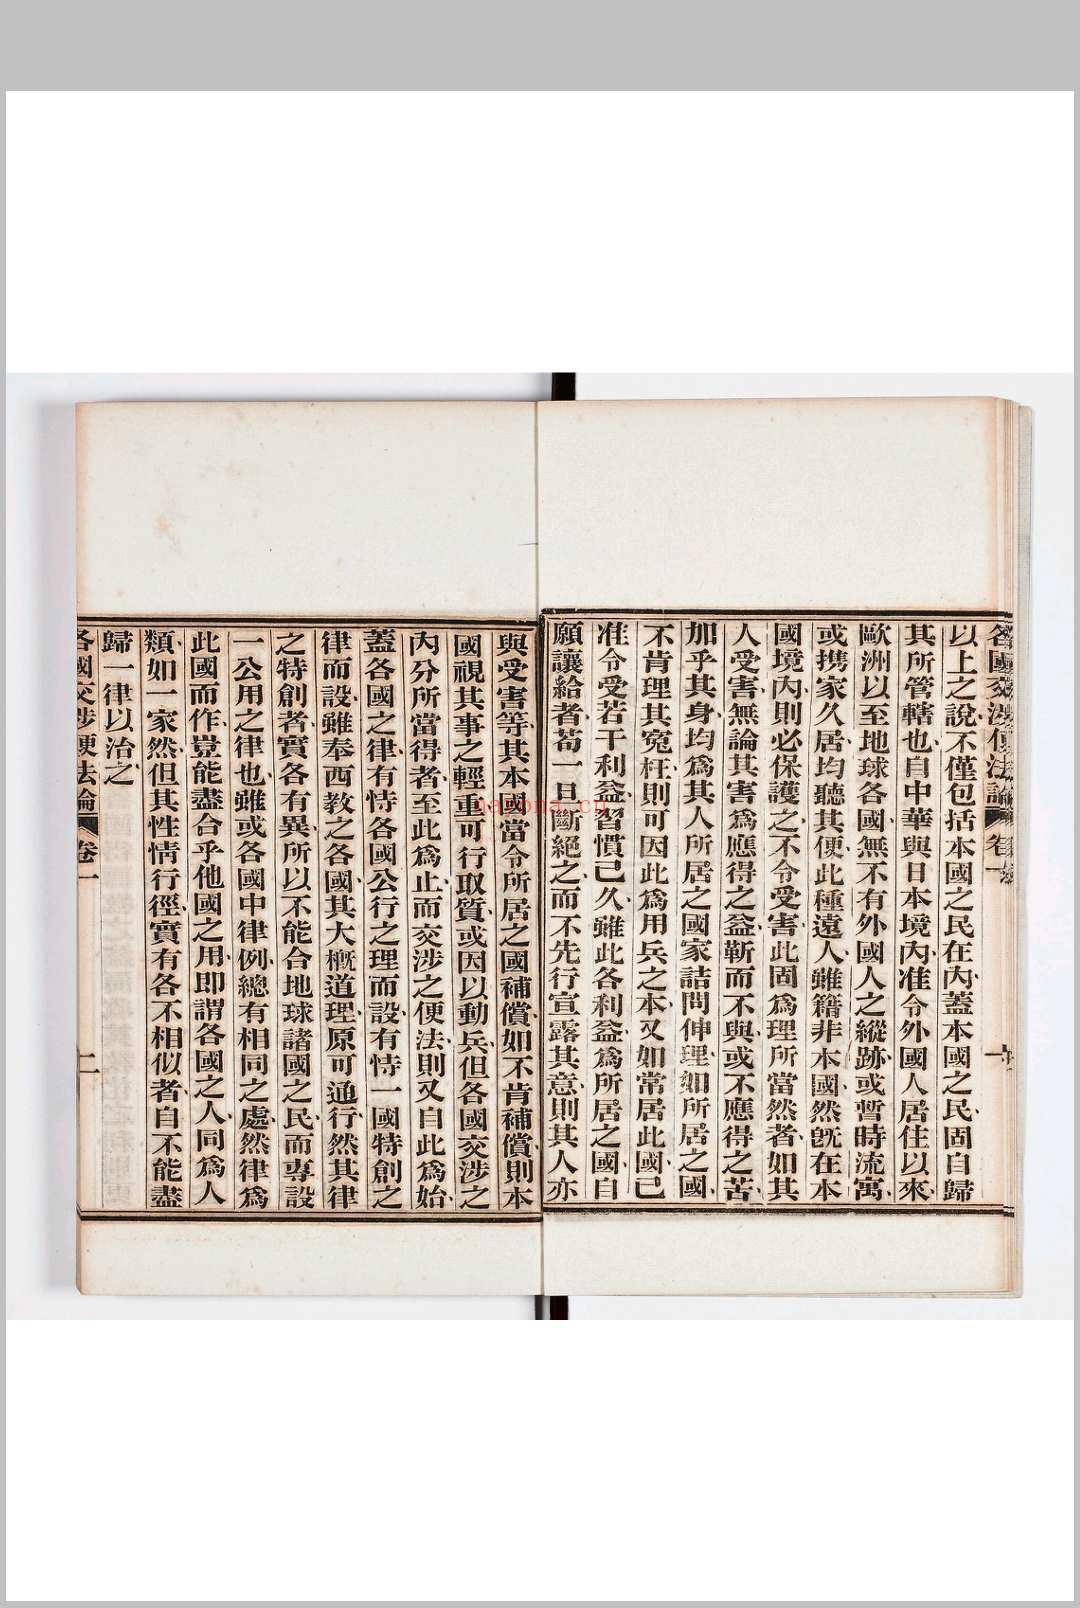 各國交涉便法論 卷一
以上之說不僅包括本國之民在內蓋本國之民固自歸
其所管轄也自中華與日本境內准令外國人居住以來
歐洲以至地球各國無不有外國人之縱跡或暫時流寓
或携家久居均聽其便此種遠人雖籍非本國然旣在本
國境內則必保護之不令受害此固爲理所當然者如其
人受害無論其害爲應得之益靳而不與或不應得之苦
加乎其身均爲其人所居之國家詰問伸理如所居之國
不肯理其寃枉則可因此爲用兵之本又如常居此國已
准令受若干利益習慣已久雖此各利益爲所居之國自
願讓給者苟一旦斷絕之而不先行宣露其意則其人亦
與受害等其本國當令所居之國補償如不肯補償則本
國視其事之輕重可行取質或因以動兵但各國交涉之
內分所當得者至此爲止而交涉之便法則又自此爲始
蓋各國之律有恃各國公行之理而設有恃一國特創之
律而設雖奉西教之各國其大槪道理原可通行然其律
之特創者實各有異所以不能合地球諸國之民而專設
一公用之律也雖或各國中律例總有相同之處然律爲
此國而作豈能盡合乎他國之用即謂各國之人同爲人
類如一家然但其性情行徑實有各不相似者自不能盡
歸一律以治之
各國交涉便法論 卷一 二
narona.cn